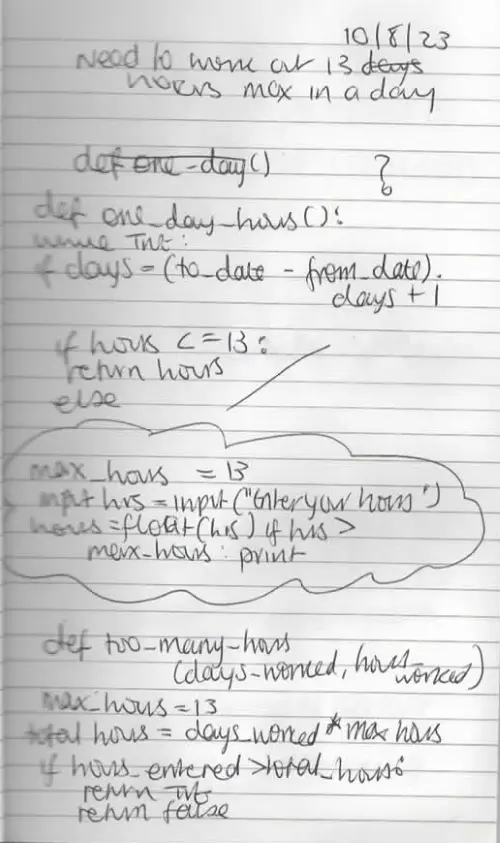 10/8/23
Need to work out 13 days
hours max in a day
def one-day()
?
def one_day_hours():
while True:
if days = (to_date - from_date).
days + 1
if hours <=13:
return hours
else
max_hours = 13
input hrs = input("Enter your hours")
hours = float(hrs) if hrs >
max-hours: print
def too-many-hours
(days-worked, hours worked)
max_hours = 13
total hours = days_worked * max hours
if hours_entered > total_hours:
return
return false